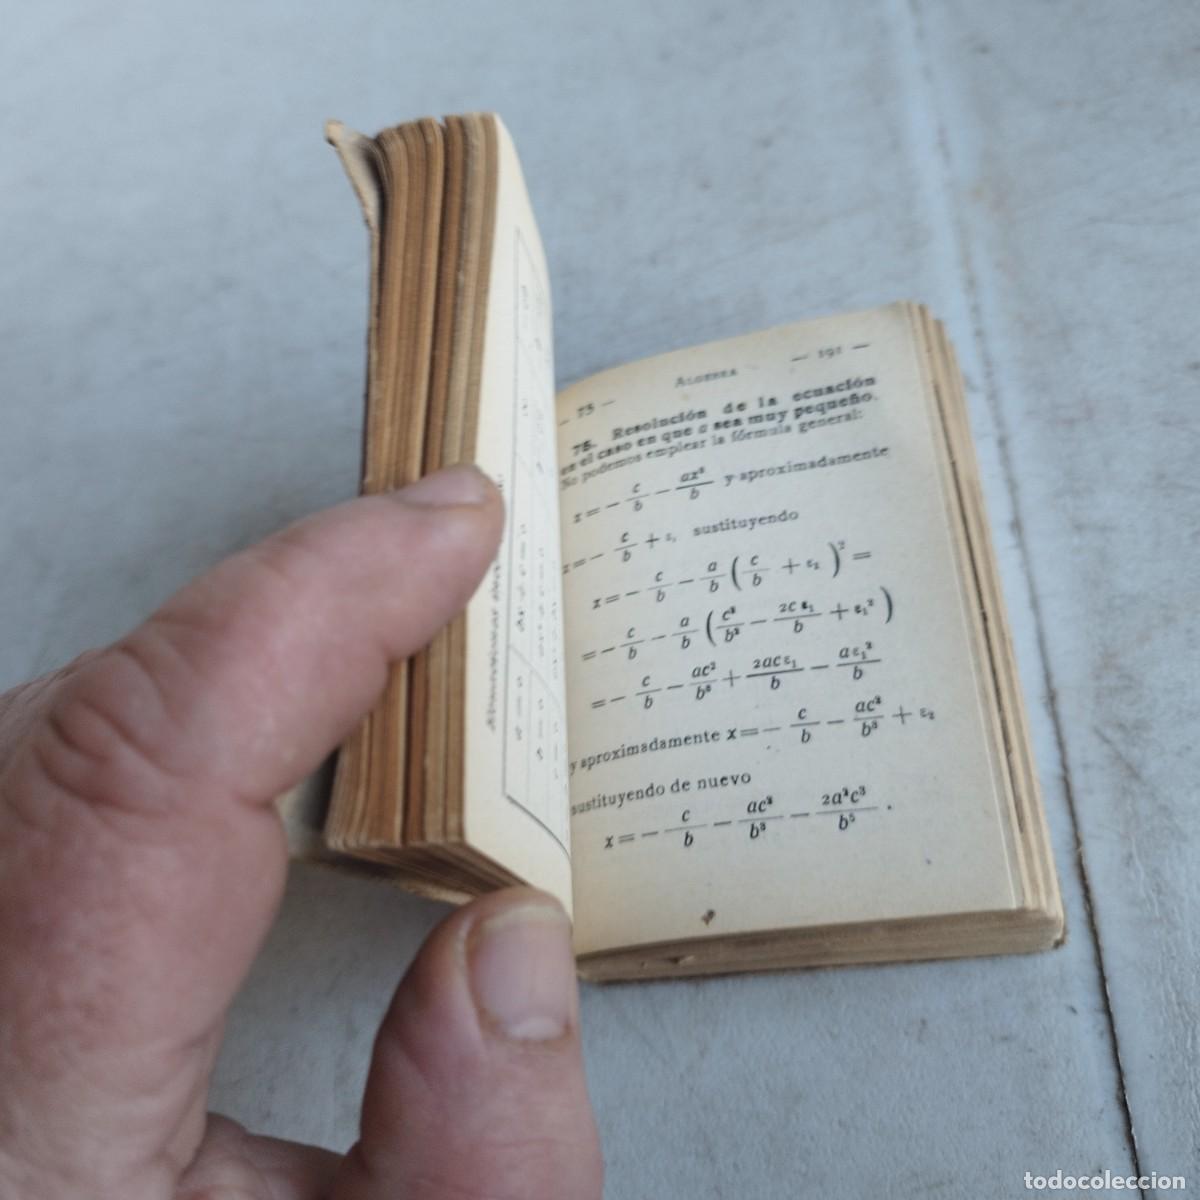 — 75 — ALGEBRA — 191 —
75. Resolución de la ecuación
en el caso en que a sea muy pequeño.
No podemos emplear la fórmula general:
x = − c/b − ax²/b y aproximadamente
x = − c/b + ε, sustituyendo
x = − c/b − a/b ( c/b + ε₂ )² =
= − c/b − a/b ( c²/b² − 2cε₁/b + ε₁² )
= − c/b − ac²/b³ + 2acε₁/b − aε₁²/b
y aproximadamente x = − c/b − ac²/b³ + ε₂
sustituyendo de nuevo
x = − c/b − ac²/b³ − 2a²c³/b⁵ .
todocoleccion